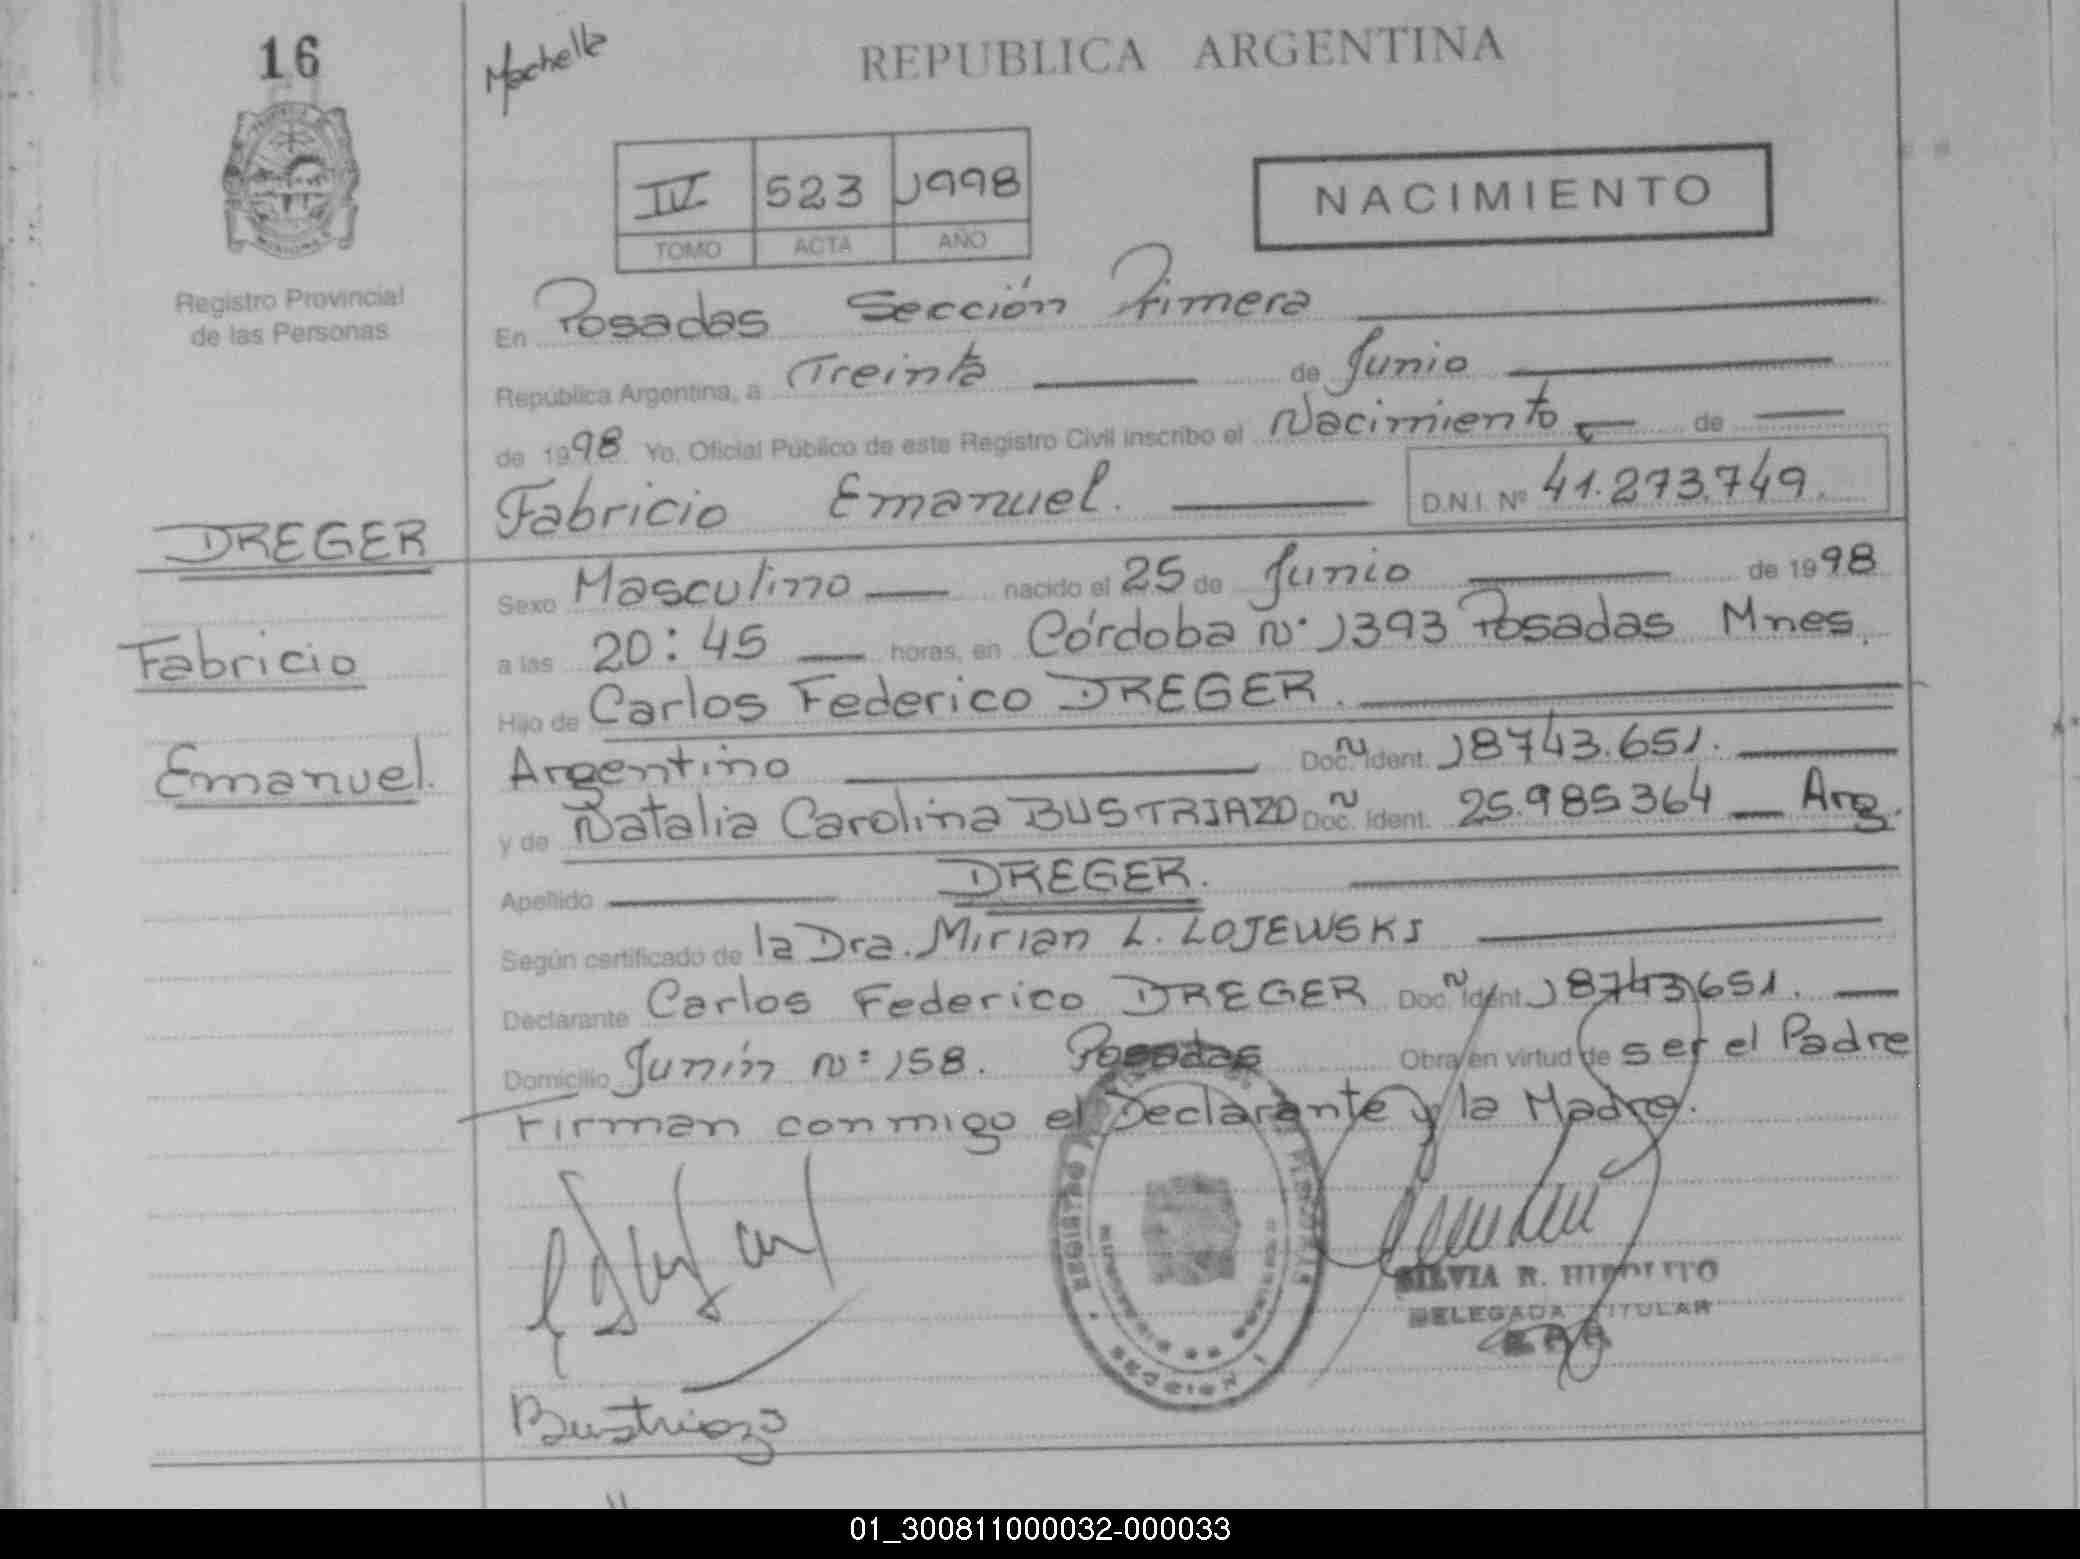 16
Mochella
REPUBLICA ARGENTINA
IV 523 1998
TOMO ACTA AÑO
NACIMIENTO
Registro Provincial
de las Personas
En Posadas Sección Primera
República Argentina, a Treinta de Junio
de 1998 Yo, Oficial Público de este Registro Civil inscribo el Nacimiento de
Fabricio Emanuel. D.N.I. Nº 41.273.749
DREGER
Fabricio
Emanuel.
Sexo Masculino nacido el 25 de Junio de 1998
a las 20:45 horas, en Córdoba Nº 1393 Posadas Mnes.
Hijo de Carlos Federico DREGER.
Argentino Doc. N Ident. 18743.651.
y de Natalia Carolina BUSTRIAZO Doc. N Ident. 25.985364 Arg.
Apellido DREGER.
Según certificado de la Dra. Mirian L. LOJEWSKI
Declarante Carlos Federico DREGER Doc. N Ident. 18743651.
Domicilio Junín Nº 158. Posadas Obra en virtud de ser el Padre
Firman conmigo el Declarante y la Madre.
SILVIA R. HIPOLITO
DELEGADA TITULAR
Bustriazo
REGISTRO
SECCION 1
01_300811000032-000033